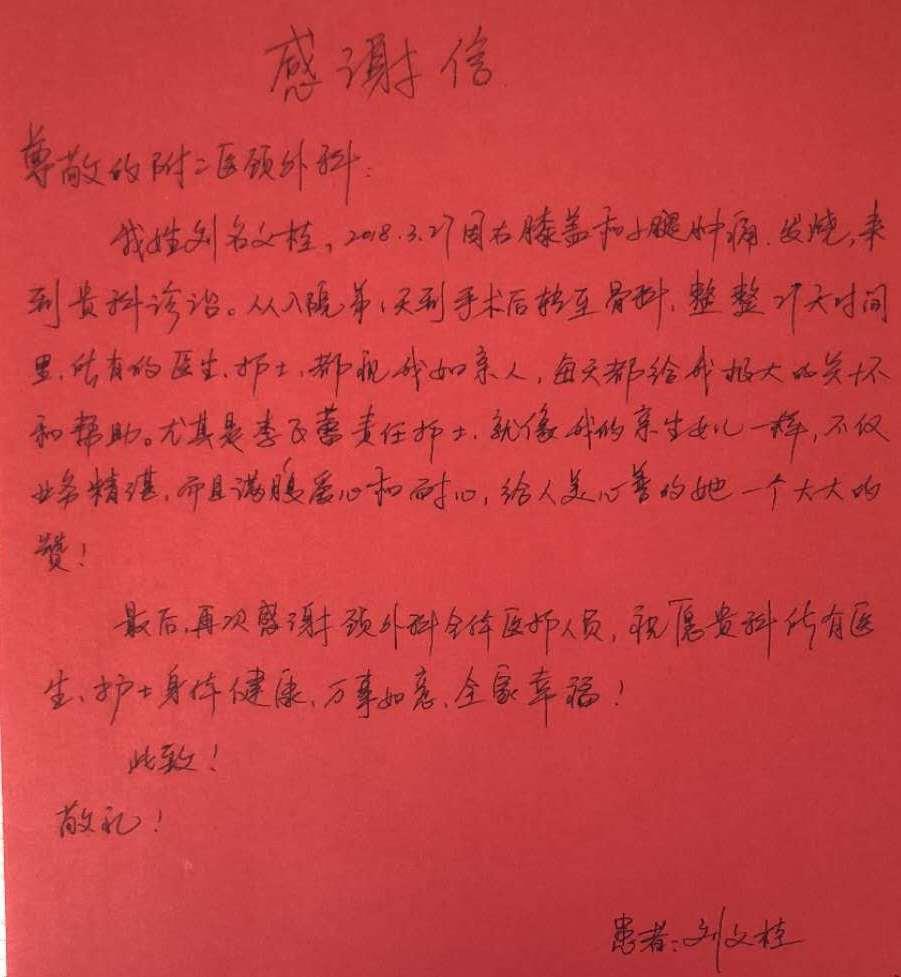 感谢信
尊敬的附二医颈外科:
我姓刘名文桂,2018.3.27因右膝盖和小腿肿痛、发烧,来
到贵科诊治。从入院第1天到手术后转至骨科,整整27天时间
里,所有的医生、护士,都视我如亲人,每天都给我极大的关怀
和帮助。尤其是李子蕾责任护士,就像我的亲生女儿一样,不仅
业务精湛,而且满腹爱心和耐心,给人美心善的她一个大大的
赞!
最后,再次感谢颈外科全体医护人员,祝愿贵科所有医
生、护士身体健康、万事如意、全家幸福!
此致!
敬礼!
患者:刘文桂